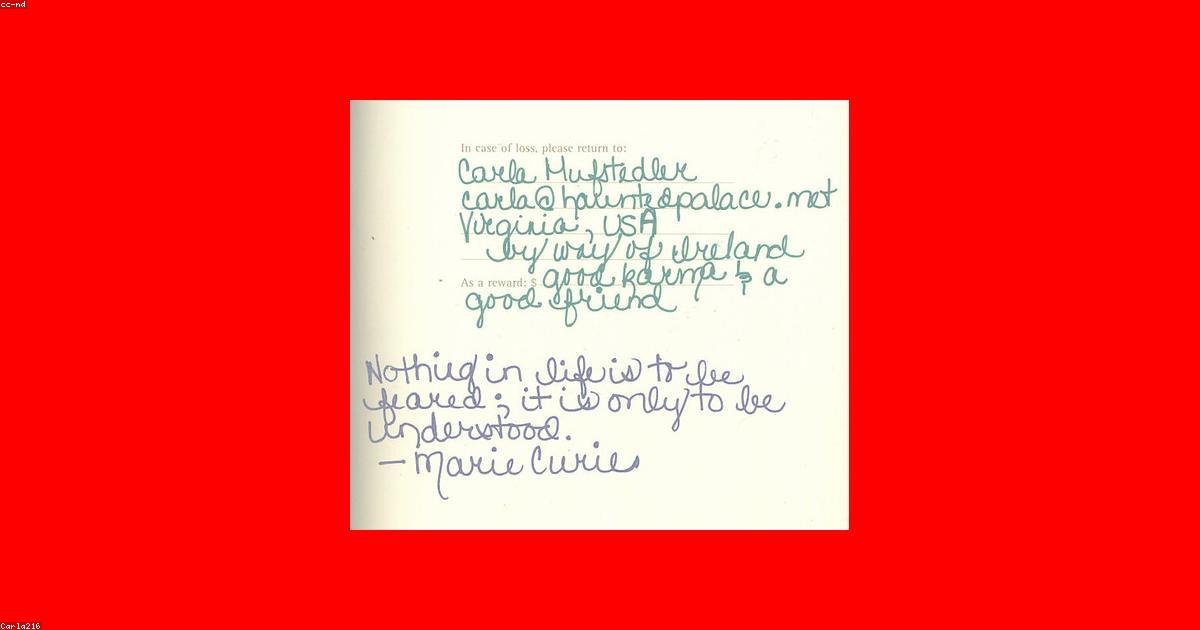 cc-nd
In case of loss, please return to:
Carla Hufstedler
carla@hauntedpalace.net
Virginia, USA
by way of Ireland
As a reward: $ good karma & a
good friend
Nothing in life is to be
feared; it is only to be
understood.
— Marie Curie
Carla216